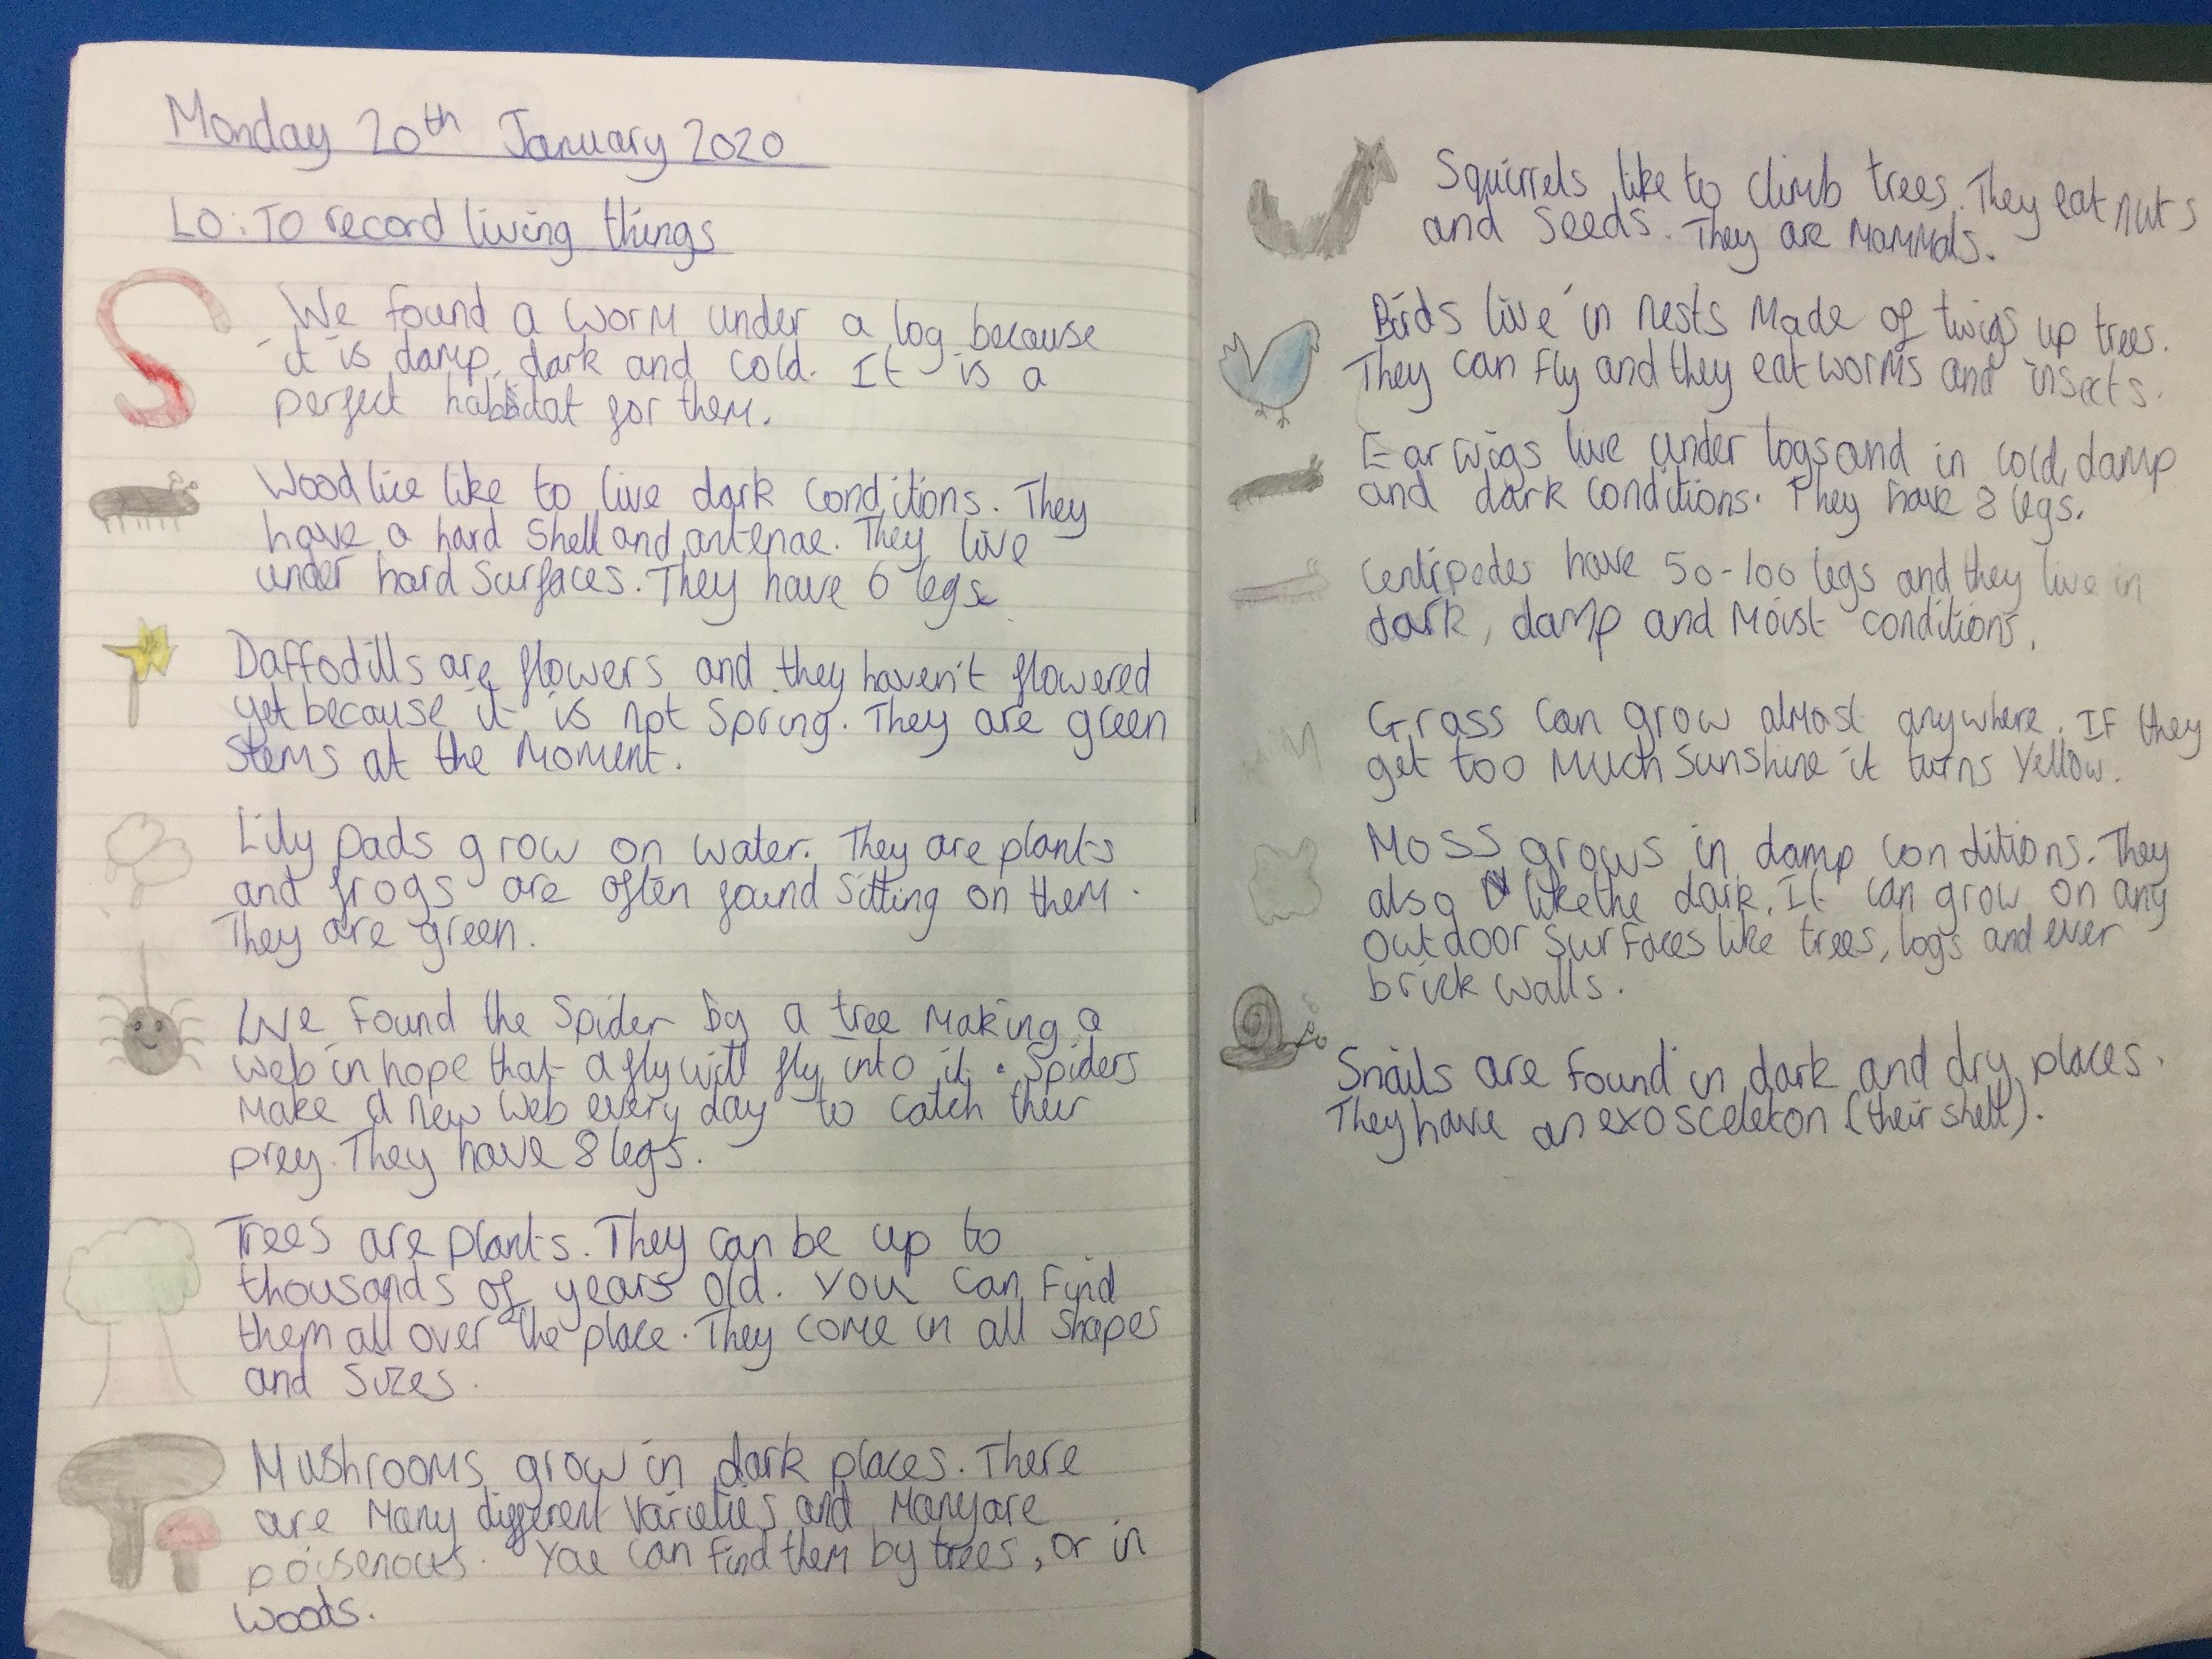 Monday 20th January 2020
LO: To record living things
We found a worm under a log because
it is damp, dark and cold. It is a
perfect habitat for them.
Woodlice like to live dark conditions. They
have a hard shell and antenae. They live
under hard surfaces. They have 6 legs
Daffodills are flowers and they haven't flowered
yet because it is not spring. They are green
stems at the moment.
Lily pads grow on water. They are plants
and frogs are often found sitting on them.
They are green.
We found the spider by a tree making a
web in hope that a fly will fly into it. Spiders
make a new web every day to catch their
prey. They have 8 legs.
Trees are plants. They can be up to
thousands of years old. You can find
them all over the place. They come in all shapes
and sizes.
Mushrooms grow in dark places. There
are many different varieties and many are
poisenous. You can find them by trees, or in
woods.
Squirrels like to climb trees. They eat nuts
and seeds. They are mammals.
Birds live in nests made of twigs up trees.
They can fly and they eat worms and insects.
Earwigs live under logs and in cold, damp
and dark conditions. They have 8 legs.
Centipedes have 50-100 legs and they live in
dark, damp and moist conditions.
Grass can grow almost anywhere. If they
get too much sunshine it turns yellow.
Moss grows in damp conditions. They
also like the dark. It can grow on any
outdoor surfaces like trees, logs and ever
brick walls.
Snails are found in dark and dry places.
They have an exosceleton (their shell).